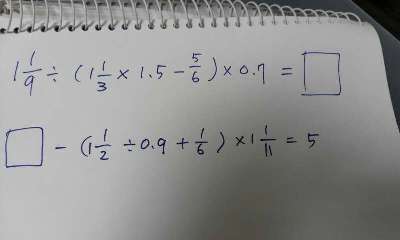 1 1/9 ÷ (1 1/3 × 1.5 − 5/6) × 0.7 = □
□ − (1 1/2 ÷ 0.9 + 1/6) × 1 1/11 = 5